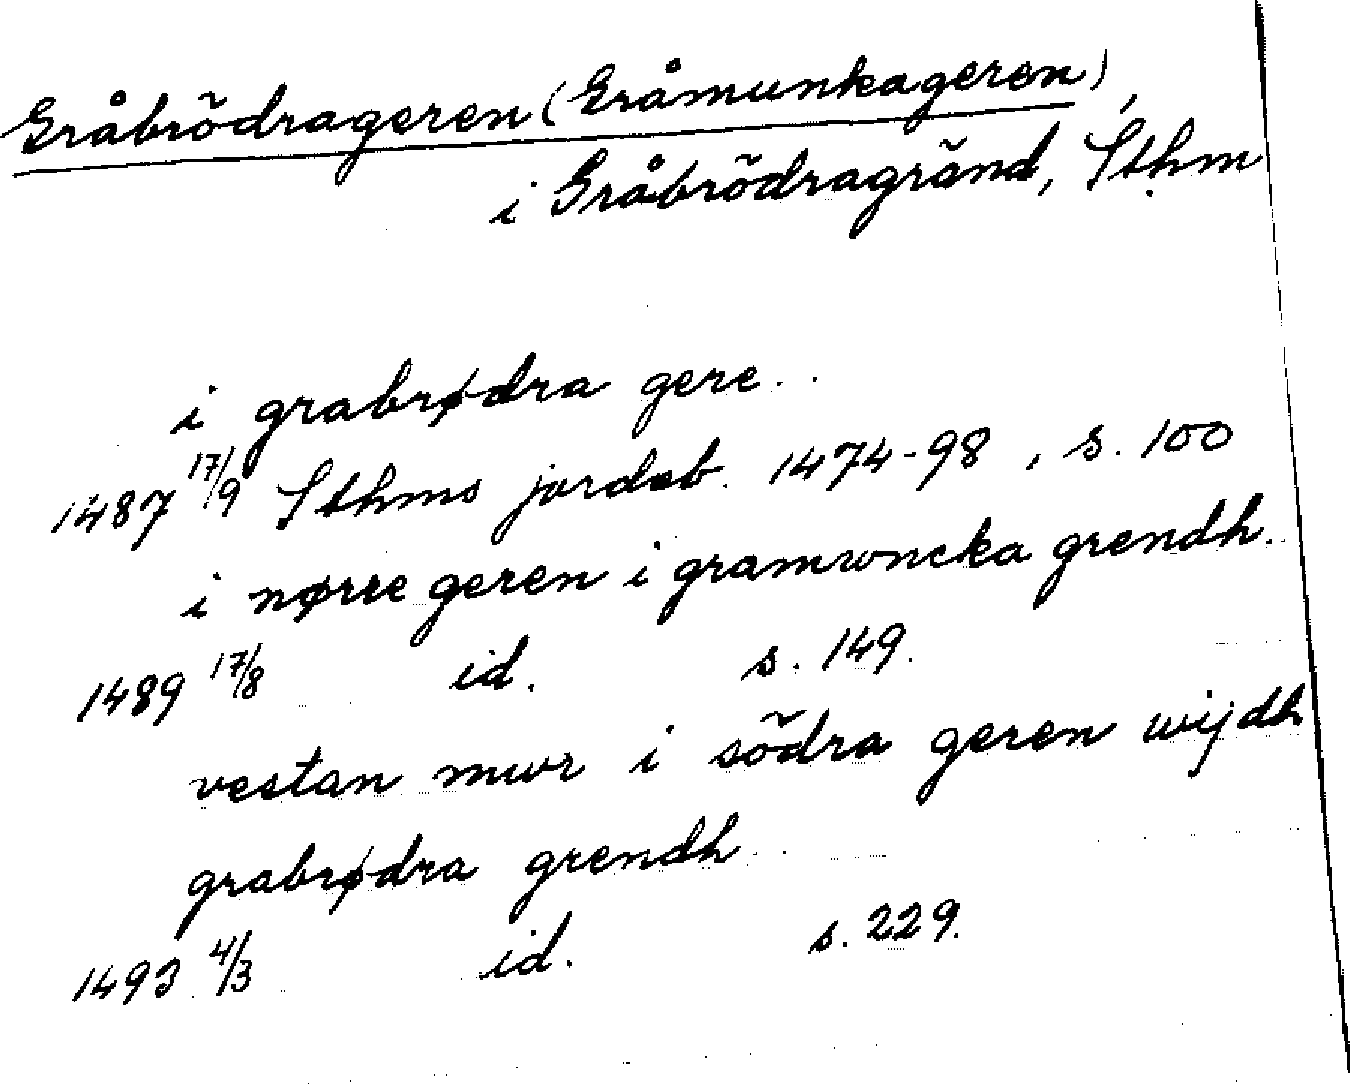 Gråbrödrageren (Gråmunkageren),
i Gråbrödragränd, Sthm
i grabrødra gere..
1487 17/9 Sthms jordeb. 1474-98, s. 100
i nørre geren i gramwncka grendh.
1489 17/8 id. s. 149.
vestan mwr i södra geren wijdh
grabrødra grendh
1493 4/3 id. s. 229.